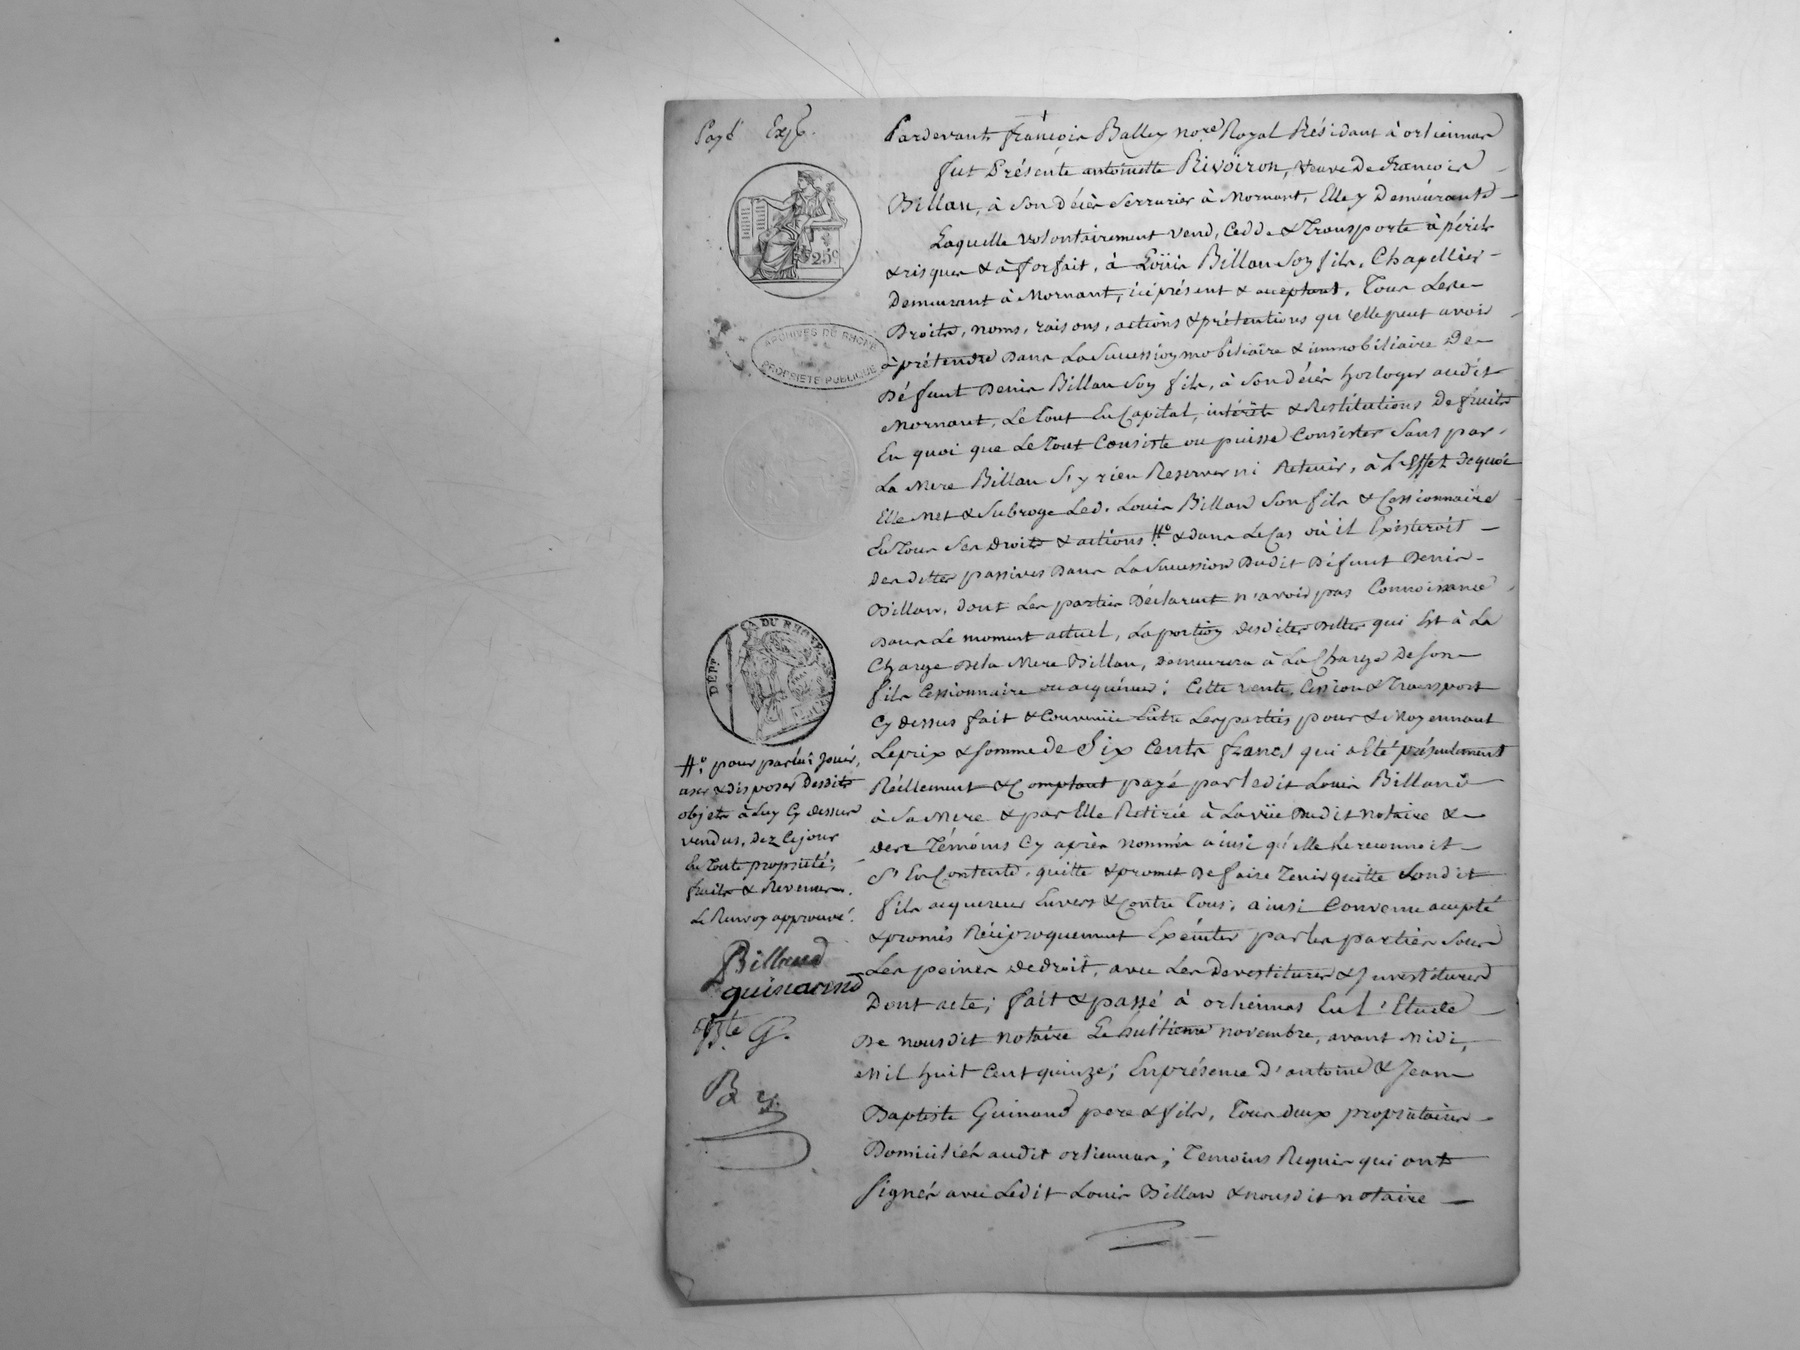 Payé Expé.
Pardevant françois Balley no.re Royal Résidant à orliennas
fut Présente antoinette Rivoiron, veuve De francois
Billan, à Son décès Serrurier à Mornant, Elle y Demeurant
Laquelle volontairement vend, Cedde & Transporte à périls
& risques & à forfait, à Loüis Billan Soy fils, Chapellier
Demeurant à Mornant, ici présent & aceptant, Tous Les
Droits, noms, raisons, actions & prétentions qu'elle peut avoir
à prétendre Dans La Succession mobiliaire & immobiliaire De
Défunt Denis Billan Soy fils, à Son décès horloger audit
Mornant, Le tout En Capital, intérêts & Restitutions De fruits
En quoi que Le Tout Consiste ou puisse Consister Sans par
La Mere Billan S'y rien Reserver ni Retenir, à L'Effet Dequoi
Elle Met & Subroge Led. Louis Billan Son fils & Cessionnaire
En Tous Ses Droits & actions H.o & dans Le Cas où il Existeroit
Des dettes passives Dans La Succession Dudit Défunt Denis
Billan, Dont Les parties Déclarent n'avoir pas Connoissance
Dans Le moment actuel, La portion Desdites Dettes qui Est à La
Charge Dela Mere Billan, Demeurera à La Charge De son
fils Cessionnaire ou acquéreur; Cette vente, Cession & Transport
Cy dessus fait & Convenüe Entre Les parties pour & Moyennant
Le prix & Somme de Six Cents francs qui a Eté présentement
Réellement & Comptant payé par ledit Louis Billand
à Sa Mere & par Elle Retirée à La vüe Dudit Notaire &
des Témoins Cy après nommés ainsi qu'elle Le reconnoit
S'En Contente, quitte & promet De faire Tenir quitte Sondit
fils acquereur Envers & Contre Tous; ainsi Convenu accepté
& promis Réciproquement Exécuter par les parties Sous
Les peines De droit, avec Les Devestitures & Investitures
Dont acte; fait & passé à orliennas En L'Etude
De nousdit Notaire Le huitieme novembre, avant Midi,
Mil huit Cent quinze; En présence D'antoine & Jean
Baptiste Guinand pere & fils, Tous deux propriétaires
Domiciliés audit orliennas; Temoins Requis qui ont
Signés avec Ledit Louis Billan & nousdit notaire
25c
ARCHIVES DU RHÔNE
PROPRIÉTÉ PUBLIQUE
DÉPT DU RHÔNE
H.o pour par lui Jouir,
user & disposer Desdits
objets à Luy Cy dessus
vendus, Dez Cejour
En Toute propriété,
fruits & Revenus.
Le Renvoy approuvé.
Billand
guinand
Bte G.
B &